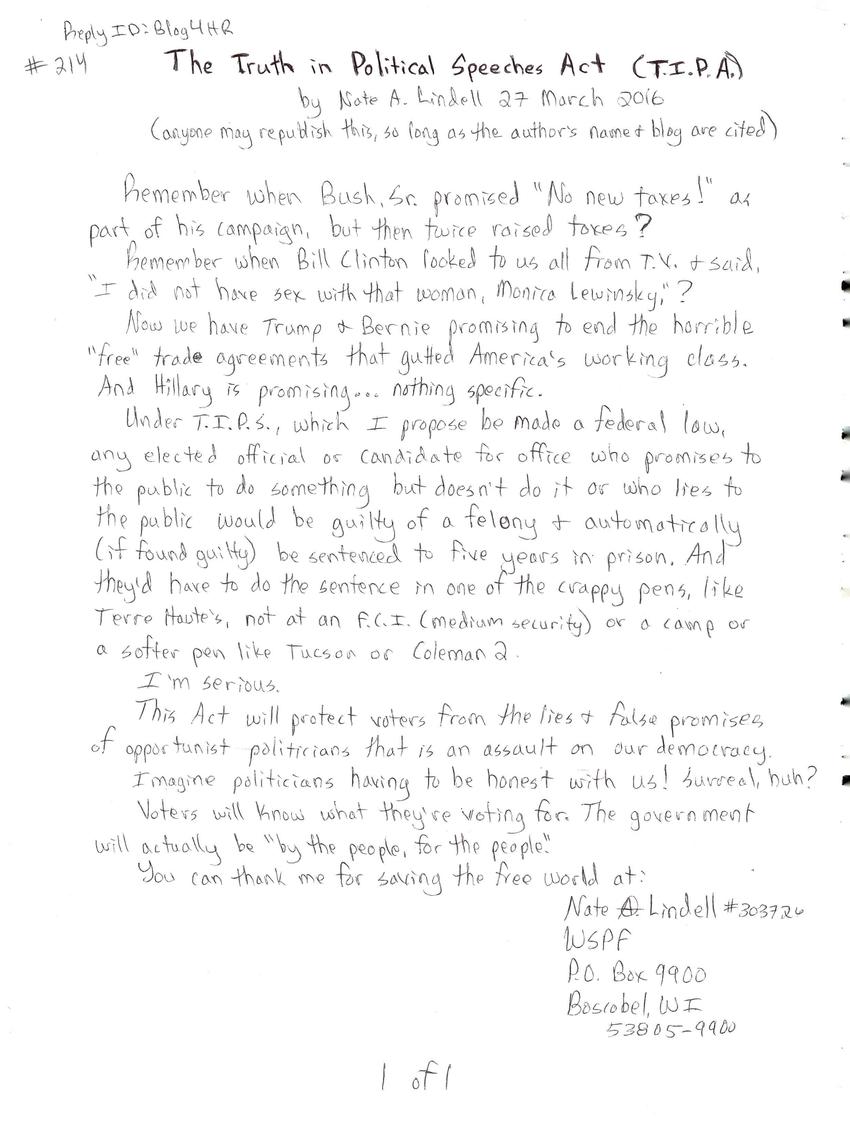 Reply ID: Blog4HR
# 214 The Truth in Political Speeches Act (T.I.P.A.)
by Nate A. Lindell 27 March 2016
(anyone may republish this, so long as the author's name + blog are cited)
Remember when Bush, Sr. promised "No new taxes!" as
part of his campaign, but then twice raised taxes?
Remember when Bill Clinton looked to us all from T.V. + said,
"I did not have sex with that woman, Monica Lewinsky,"?
Now we have Trump + Bernie promising to end the horrible
"free" trade agreements that gutted America's working class.
And Hillary is promising... nothing specific.
Under T.I.P.S., which I propose be made a federal law,
any elected official or candidate for office who promises to
the public to do something but doesn't do it or who lies to
the public would be guilty of a felony + automatically
(if found guilty) be sentenced to five years in prison. And
they'd have to do the sentence in one of the crappy pens, like
Terre Haute's, not at an F.C.I. (medium security) or a camp or
a softer pen like Tucson or Coleman 2.
I'm serious.
This Act will protect voters from the lies + false promises
of opportunist politicians that is an assault on our democracy.
Imagine politicians having to be honest with us! Surreal, huh?
Voters will know what they're voting for. The government
will actually be "by the people, for the people."
You can thank me for saving the free world at:
Nate A Lindell #303724
WSPF
P.O. Box 9900
Boscobel, WI
53805-9900
1 of 1